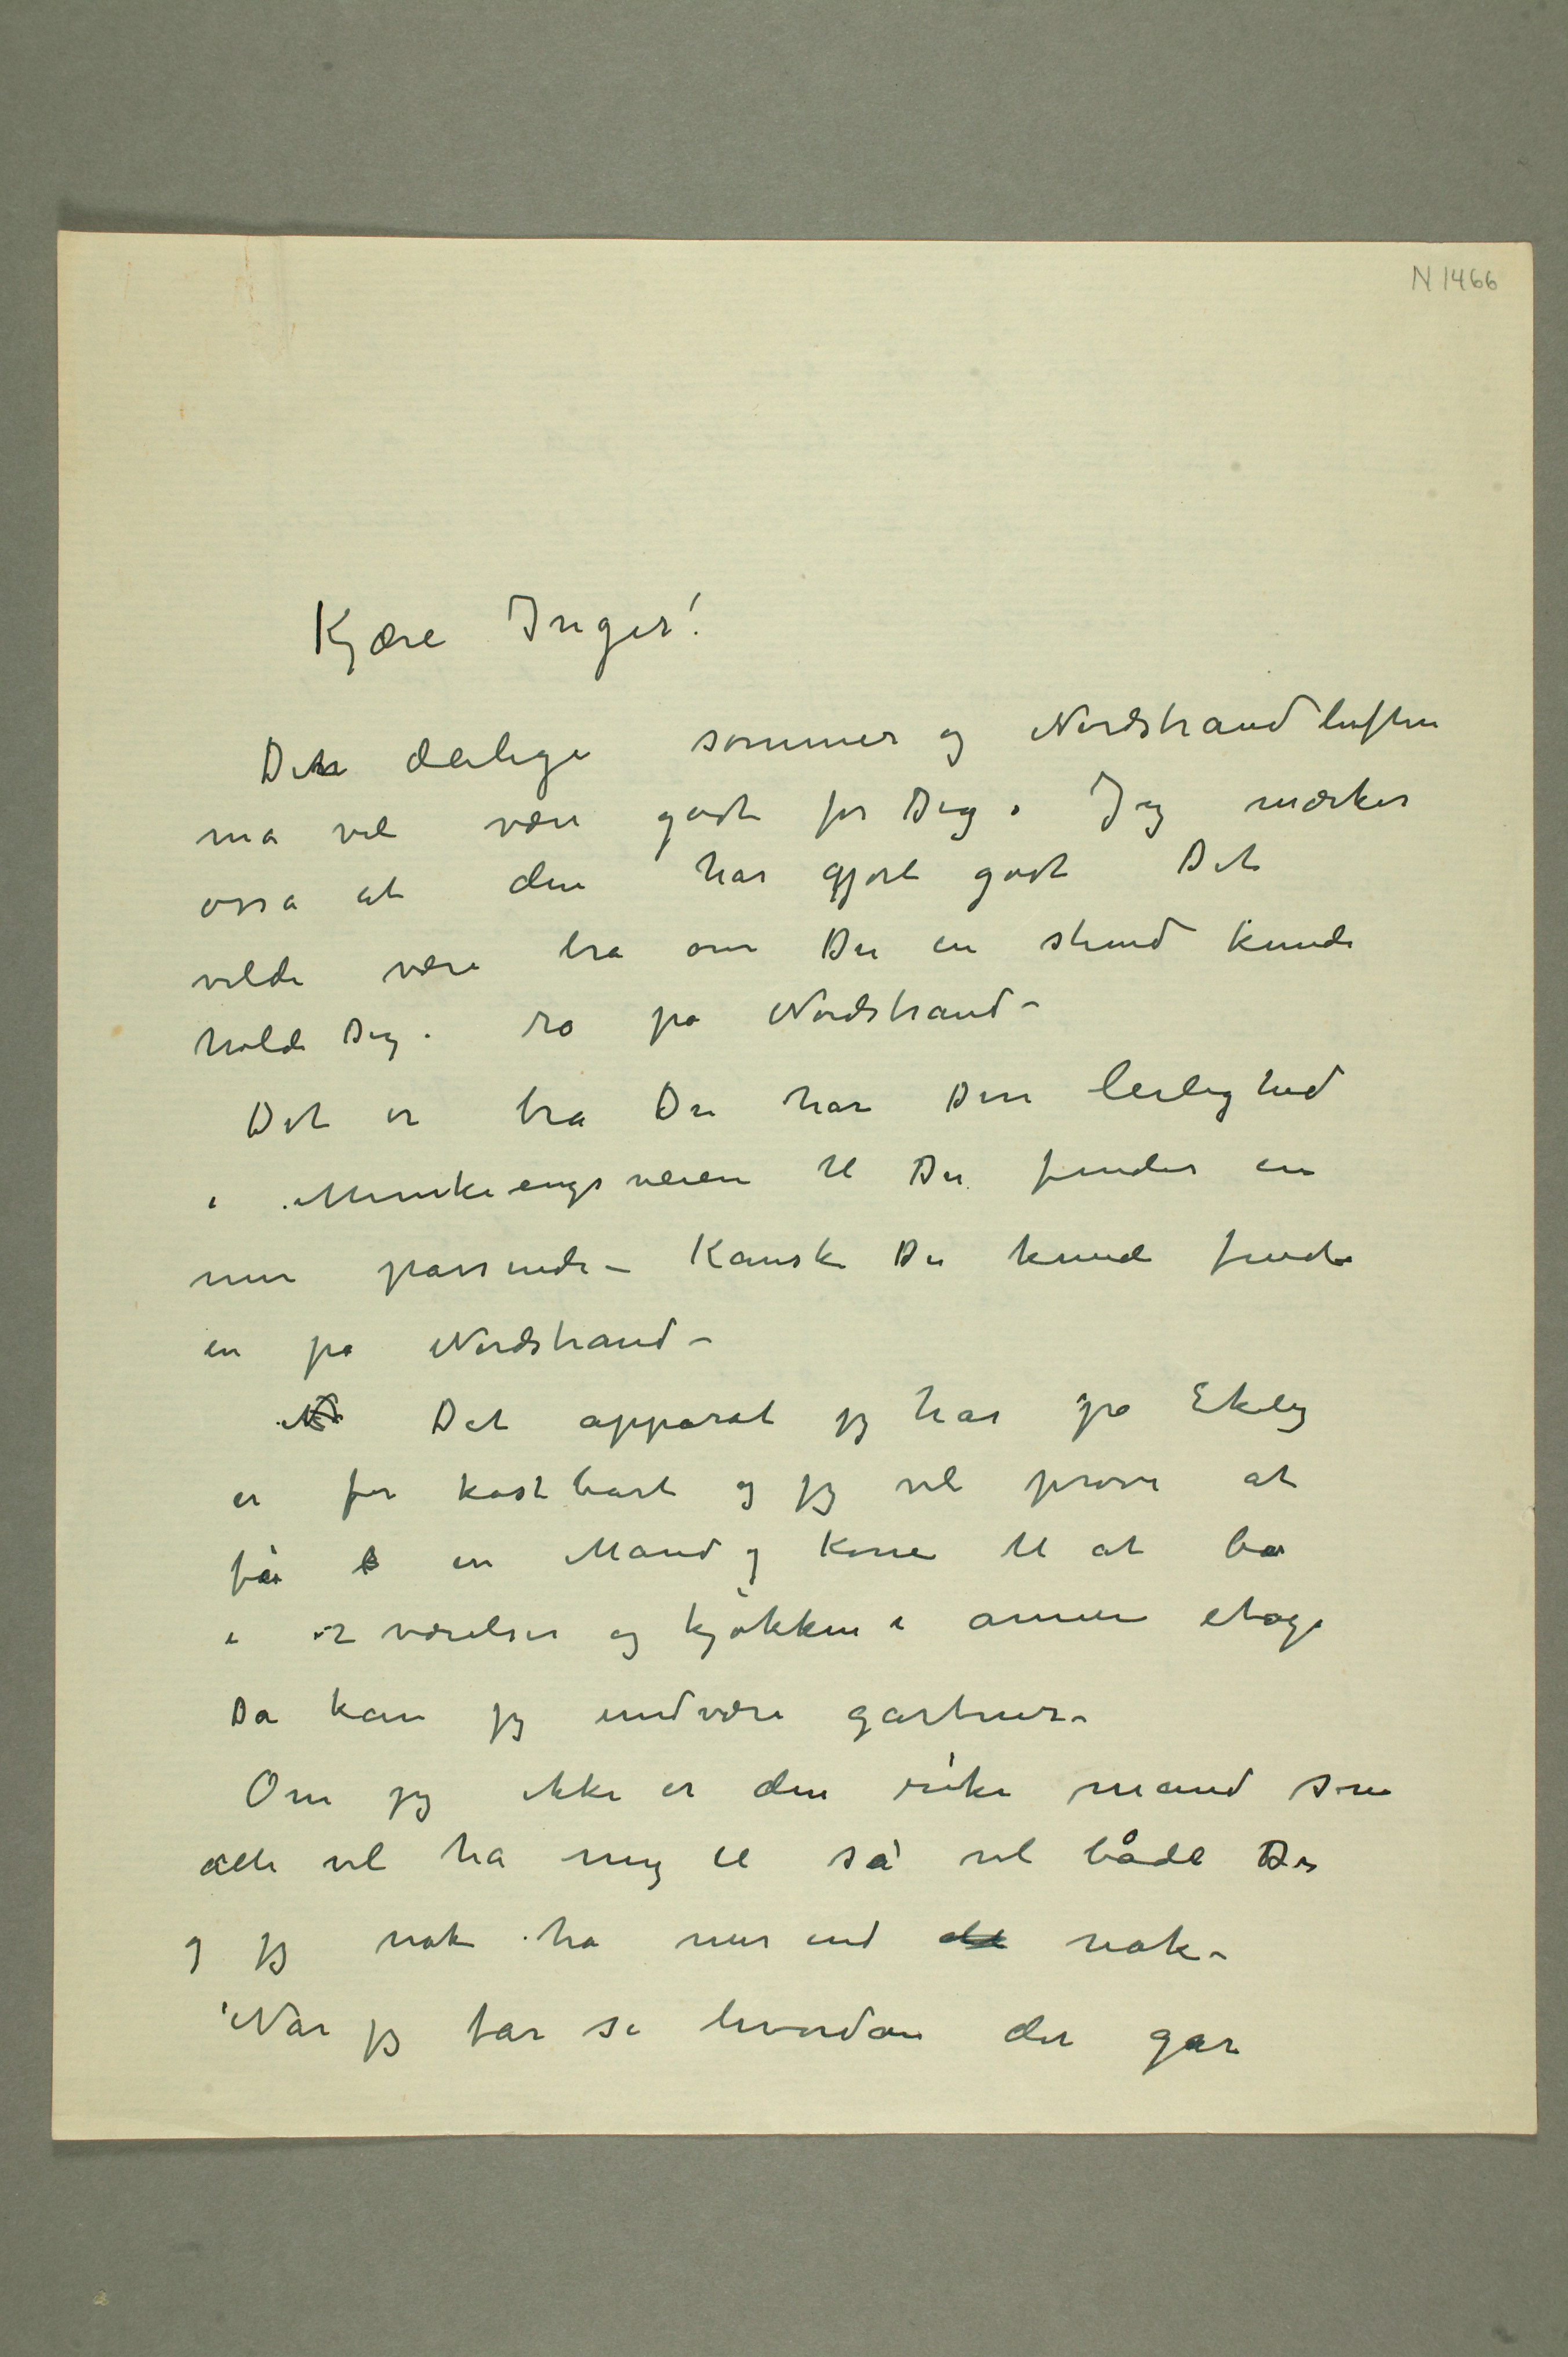 N 1466
Kjære Inger!
Den deilige sommer og Nordstrandluften
må vel være godt for Dig. Jeg mærker
osså at den har gjort godt Det
vilde være bra om Du en stund kunde
holde Dig i ro på Nordstrand –
Det er bra Du har Din leilighed
i Munkeengsveien til Du finder en
mer passende – Kanske Du kunde finde
en på Nordstrand –
Det apparat jeg har på Ekely
er for kostbart og jeg vil prøve at
få en Mand og Kone til at bo
i 2 værelser og kjøkken i annen etage
Da kan jeg undvære gartner –
Om jeg ikke er den rike mand som
alle vil ha mig til så vil både Du
og jeg nok ha mer end nok –
Når jeg får se hvordan det går